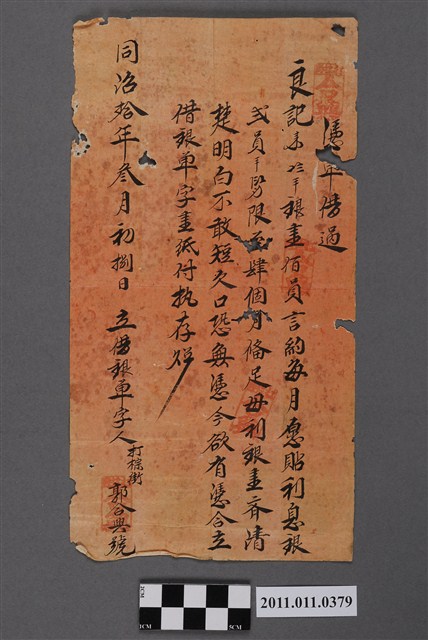 憑單借過
良記來六八平銀壹佰員言約每月愿貼利息銀
弍員平另限至肆個月俻足母利銀壹齊清
楚明白不敢短欠口恐無憑今欲有憑合立
借銀單字壹紙付执存炤
同治拾年叁月初捌日 立借銀單字人打棕街郭合興號
2CM
1CM
5CM
2011.011.0379